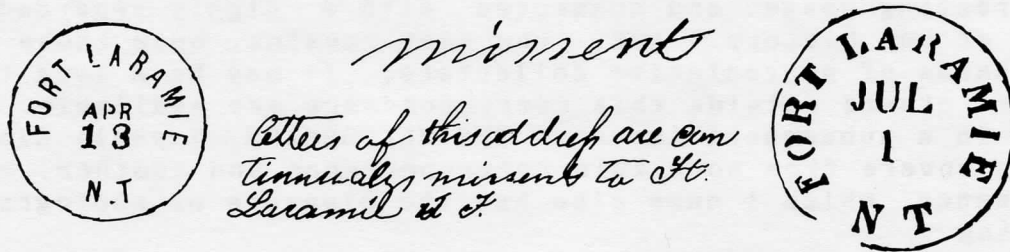 FORT LARAMIE
APR
13
N T
missent
letters of this address are con
tinnualy missent to Ft.
Laramie N T.
FORT LARAMIE
JUL
1
N T